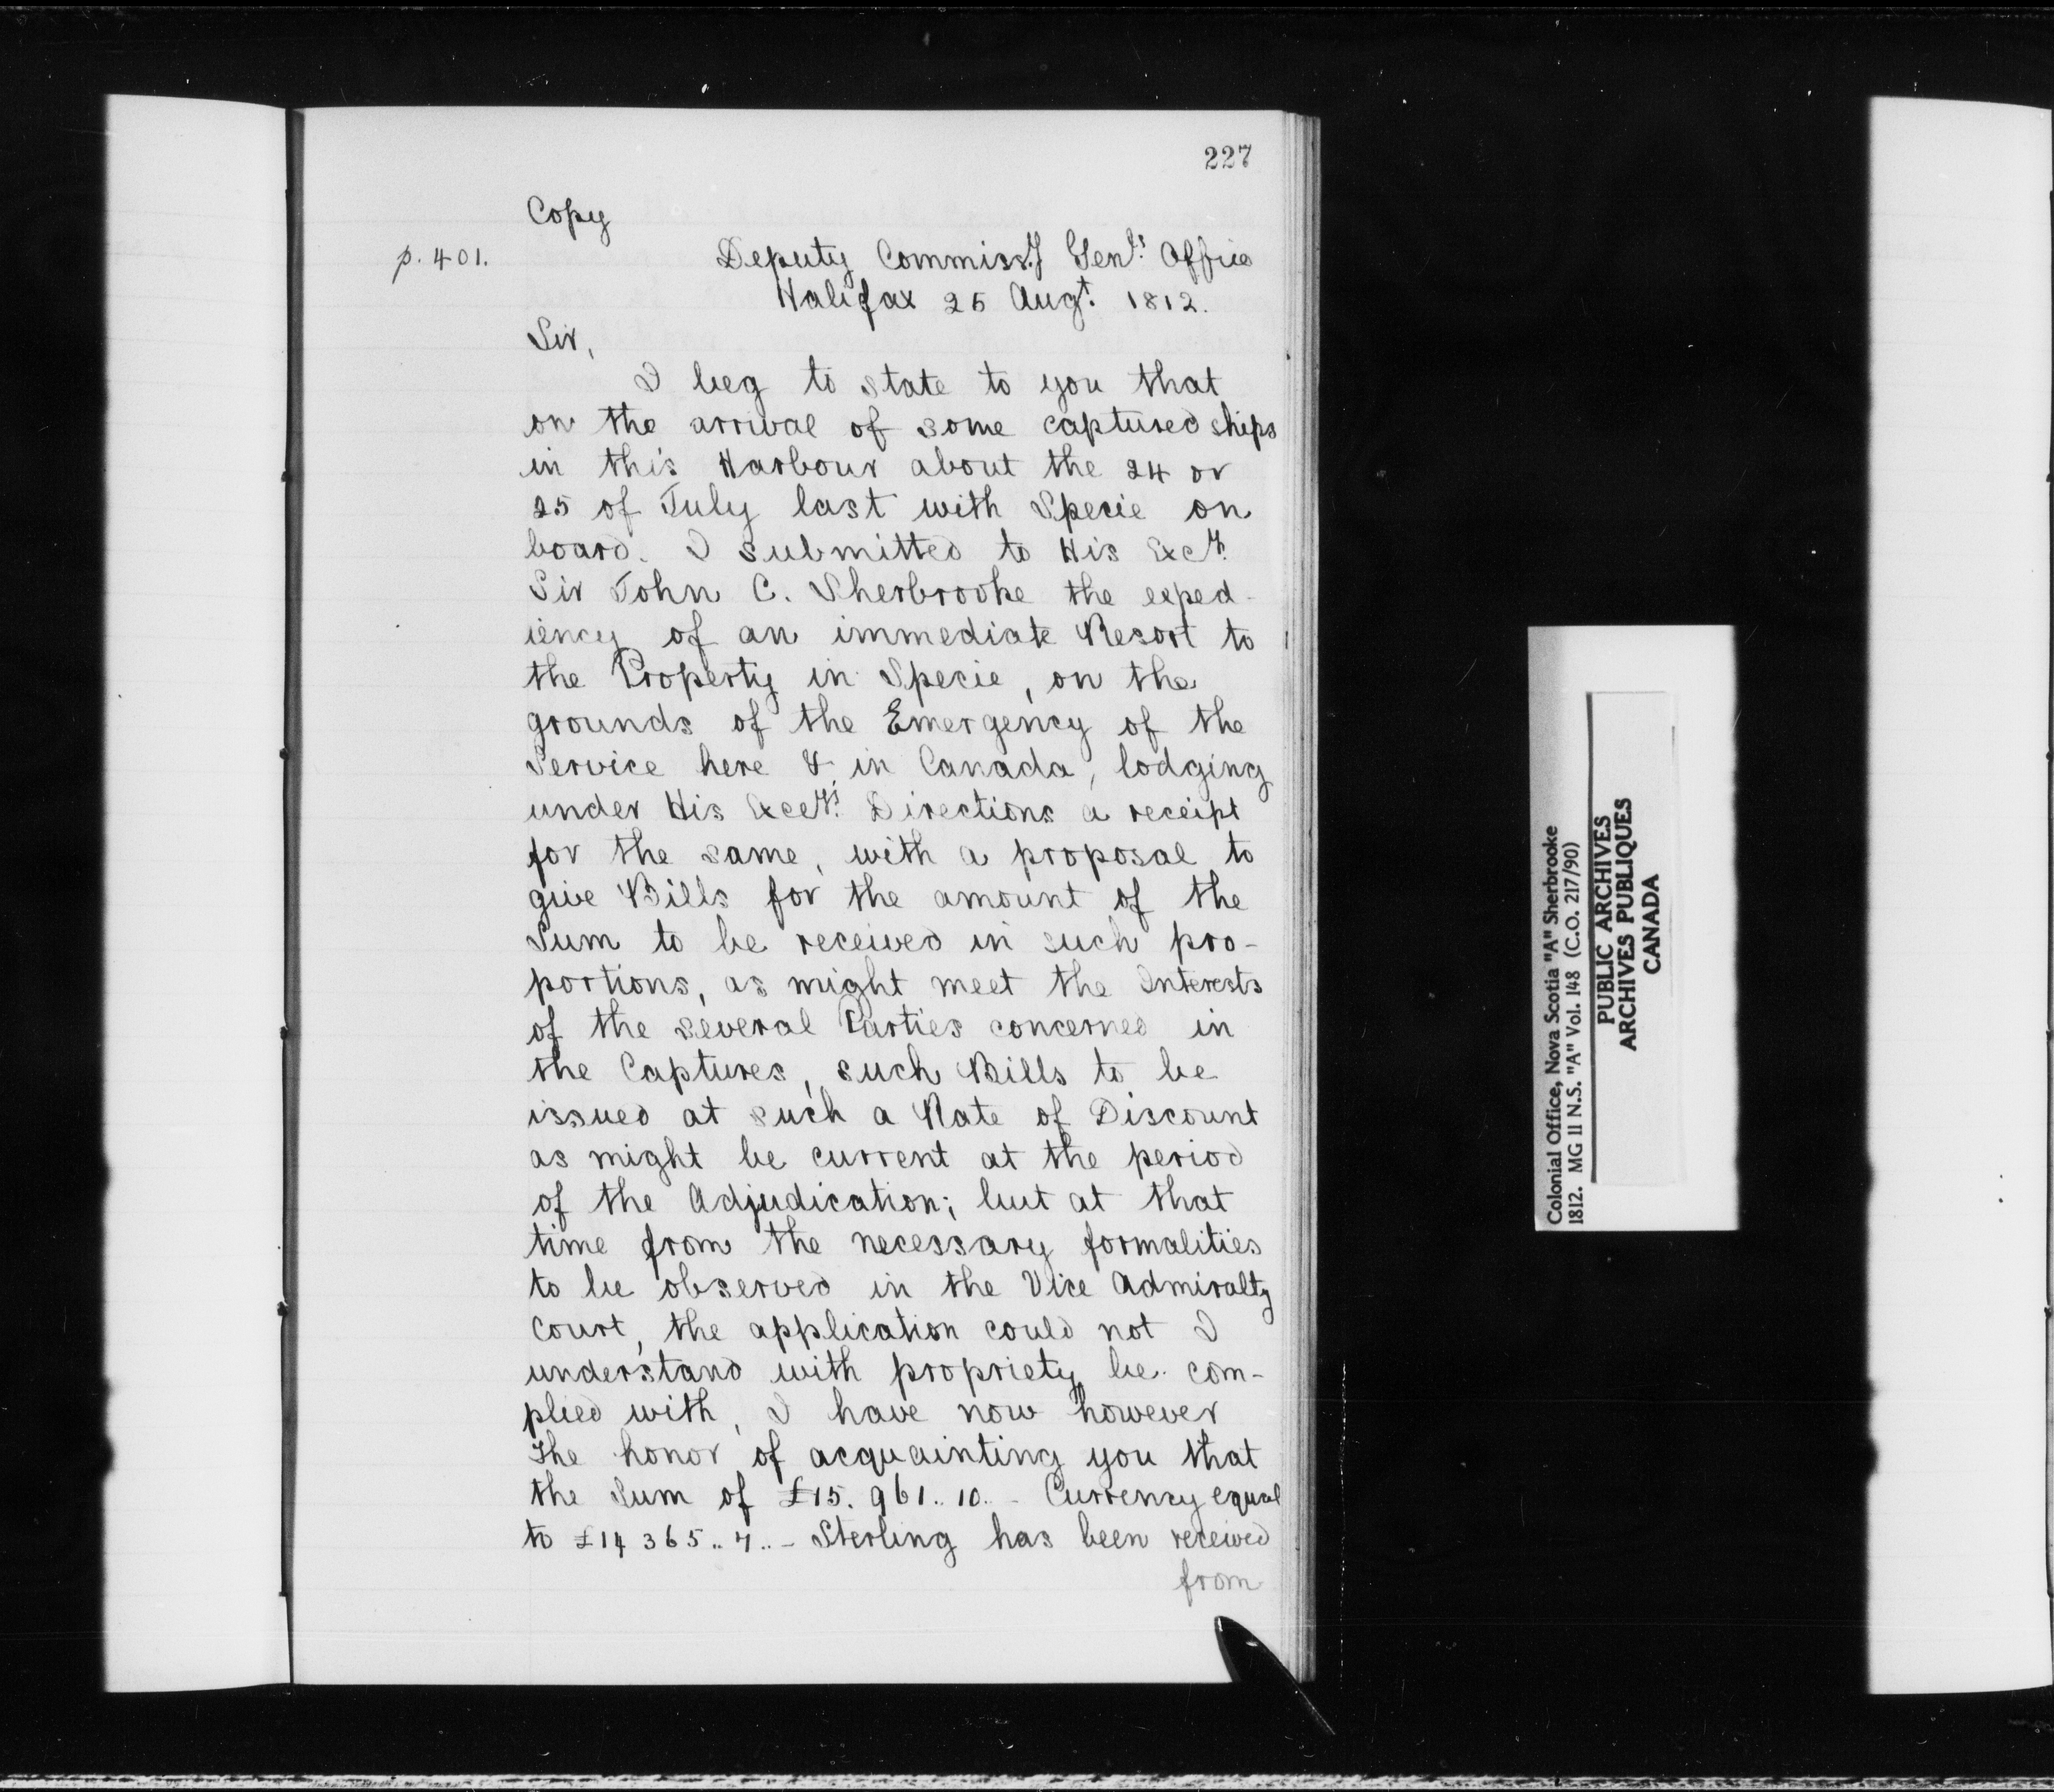 227
Copy
p. 401.
Deputy Commissy Genls Office
Halifax 25 Augt. 1812.
Sir,
I beg to state to you that
on the arrival of some captured ships
in this Harbour about the 24 or
25 of July last with Specie on
board. I submitted to His Excy.
Sir John C. Sherbrooke the exped-
iency of an immediate Resort to
the Property in Specie, on the
grounds of the Emergency of the
Service here & in Canada, lodging
under His Excelys. Directions a receipt
for the same, with a proposal to
give Bills for the amount of the
Sum to be received in such pro-
portions, as might meet the Interests
of the several Parties concerned in
the Captures, such Bills to be
issued at such a Rate of Discount
as might be current at the period
of the Adjudication; but at that
time from the necessary formalities
to be observed in the Vice Admiralty
Court, the application could not I
understand with propriety be com-
plied with, I have now however
the honor of acquainting you that
the Sum of £15.961..10..- Currency equal
to £14365..7..- Sterling has been received
from
Colonial Office, Nova Scotia "A" Sherbrooke
1812. MG 11 N.S. "A" Vol. 148 (C.O. 217/90)
PUBLIC ARCHIVES
ARCHIVES PUBLIQUES
CANADA